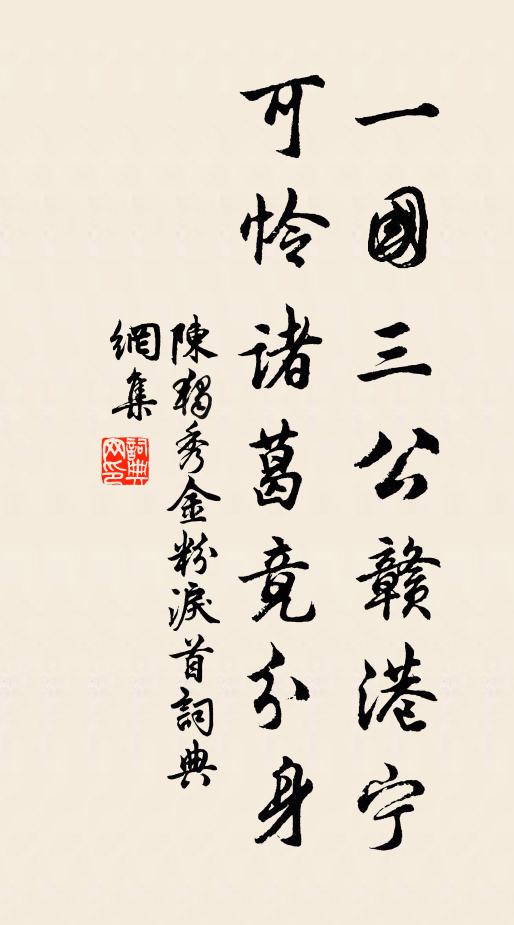 一國三公贛港宁
可怜諸葛竟分身
陳獨秀金粉淚首詞典
網集
詞典网印